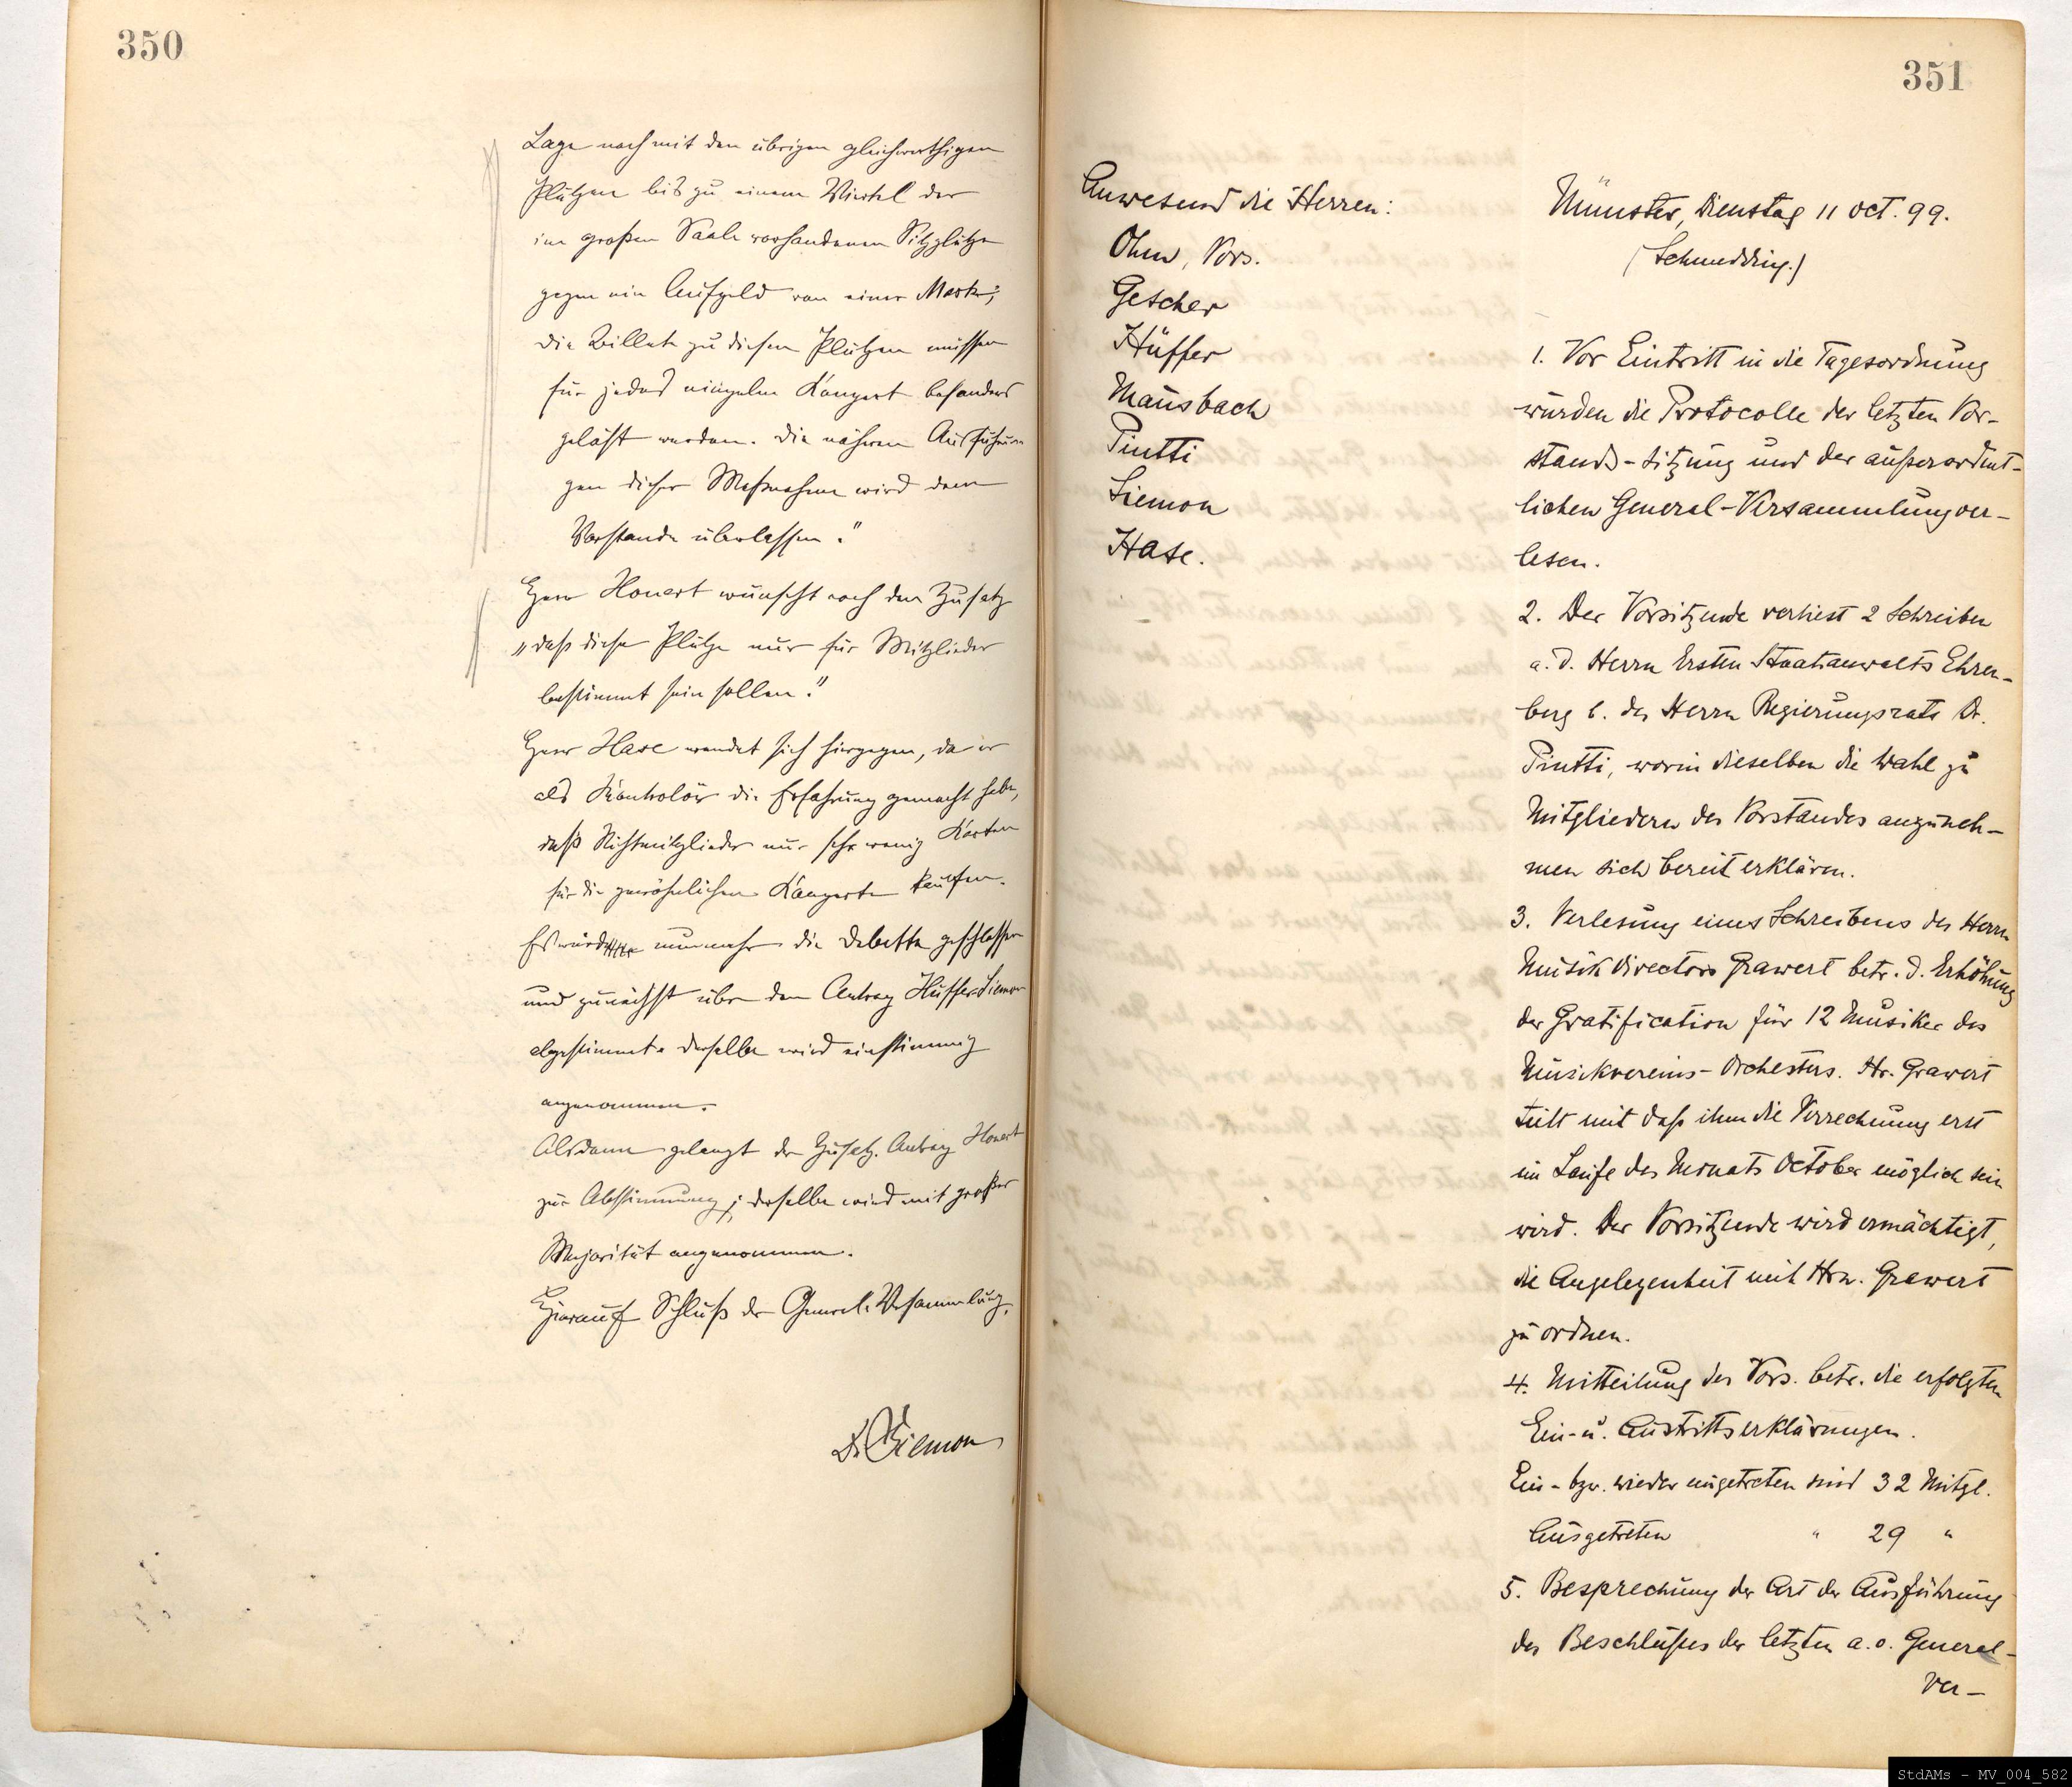 350
Lage nach mit den übrigen gleichwerthigen
Plätzen bis zu einem Viertel der
im großen Saale vorhandenen Sitzplätze
gegen ein Aufgeld von einer Mark;
die Billets zu diesen Plätzen müssen
für jedes einzelne Konzert besonders
gelöst werden. Die näheren Ausführun
gen dieser Maßnahme wird dem
Vorstande überlassen."
Herr Honert wünscht noch den Zusatz
„daß diese Plätze nur für Mitglieder
bestimmt sein sollen."
Herr Hase wendet sich hiergegen, da er
als Kontrolör die Erfahrung gemacht habe,
daß Nichtmitglieder nur sehr wenig Karten
für die gewöhnlichen Konzerte kaufen.
Es wurde nunmehr die Debatte geschlossen
und zunächst über den Antrag Hüffer-Siemon
abgestimmt. Derselbe wird einstimmig
angenommen.
Alsdann gelangt der Zusatz-Antrag Honert
zur Abstimmung; derselbe wird mit großer
Majorität angenommen.
Hierauf Schluß der General-Versammlung.
Dr. Siemon
351
Anwesend die Herren:
Ohm, Vors.
Gescher
Hüffer
Mausbach
Piutti
Siemon
Hase.
Münster, Dienstag 11 Oct. 99.
(Schmedding.)
1. Vor Eintritt in die Tagesordnung
wurden die Protocolle der letzten Vor-
stands-Sitzung und der außerordent-
lichen General-Versammlung ver-
lesen.
2. Der Vorsitzende verliest 2 Schreiben
a. d. Herrn Ersten Staatsanwalts Ehren-
berg b. des Herrn Regierungsrats Dr.
Piutti, worin dieselben die Wahl zu
Mitgliedern des Vorstandes anzuneh-
men sich bereit erklären.
3. Verlesung eines Schreibens des Herrn
Musikdirectors Grawert betr. d. Erhöhung
der Gratification für 12 Musiker des
Musikvereins-Orchesters. Hr. Grawert
teilt mit daß ihm die Verrechnung erst
im Laufe des Monats October möglich sein
wird. Der Vorsitzende wird ermächtigt,
die Angelegenheit mit Hrn. Grawert
zu ordnen.
4. Mitteilung des Vors. betr. die erfolgten
Ein- u. Austrittserklärungen.
Ein- bzw. wieder eingetreten sind 32 Mitgl.
Ausgetreten " 29 "
5. Besprechung der Art der Ausführung
des Beschlußes der letzten a. o. General-
Ver-
StdAMs - MV_004_582